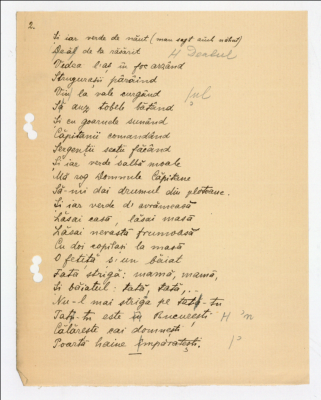 2.
Și iar verde de năut (mau sagt auch năhut)
Dealf de la răsărit H Dealul
Vedea l-aș în foc arzând
Strugurașii pârâind
Vinl la vale curgând /ul
Să auz tobele bătând
Și cu goarnele sunând
Căpitanii comandând
Sergenții scutu făcând
Și iar verde salbă moale
Mă rog Domnule Căpitane
Să-mi dai drumul din plotoane.
Și iar verde d'avrămeasă
Lăsai casă, lăsai masă
Lăsai nevastă frumoasă
Cu doi copilași la masă
O fetiță s'un băiat
Fata strigă: mamă, mamă,
Și băiatul: tată, tată, ..
Nu-l mai strigă pe tată-tu
Tată-tu este în București H 'n
Călărește cai domnești
Poartă haine împărătești. /p